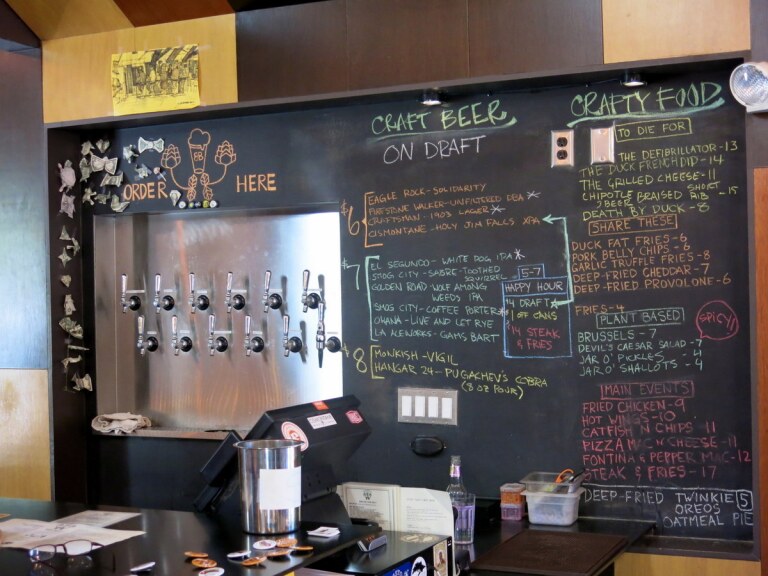 ORDER HERE
BB
CRAFT BEER
ON DRAFT
$6
EAGLE ROCK-SOLIDARITY
FIRESTONE WALKER-UNFILTERED DBA
CRAFTSMAN-1903 LAGER
CISMONTANE-HOLY JIM FALLS XPA
$7
EL SEGUNDO-WHITE DOG IPA
SMOG CITY-SABRE-TOOTHED
SQUIRREL
GOLDEN ROAD WOLF AMONG
WEEDS IPA
SMOG CITY-COFFEE PORTER
OHANA-LIVE AND LET RYE
LA ALEWORKS-GAMS BART
$8
MONKISH-VIGIL
HANGAR 24-PUGACHEV'S COBRA
(8 OZ POUR)
5-7
HAPPY HOUR
$4 DRAFT
1 OFF CANS
$14 STEAK
& FRIES
CRAFTY FOOD
TO DIE FOR
THE DEFIBRILLATOR-13
THE DUCK FRENCH DIP-14
THE GRILLED CHEESE-11
CHIPOTLE BRAISED SHORT
RIB-15
DEATH BY DUCK-8
SHARE THESE
DUCK FAT FRIES-6
PORK BELLY CHIPS-6
GARLIC TRUFFLE FRIES-8
DEEP-FRIED CHEDDAR-7
DEEP-FRIED PROVOLONE-6
FRIES-4
PLANT BASED
SPICY!!
BRUSSELS-7
DEVIL'S CAESAR SALAD-7
JAR O' PICKLES-4
JAR O' SHALLOTS-4
MAIN EVENTS
FRIED CHICKEN-9
HOT WINGS-10
CATFISH N CHIPS-11
PIZZA MAC N CHEESE-11
FONTINA & PEPPER MAC-12
STEAK & FRIES-17
DEEP-FRIED TWINKIE 5
OREOS
OATMEAL PIE